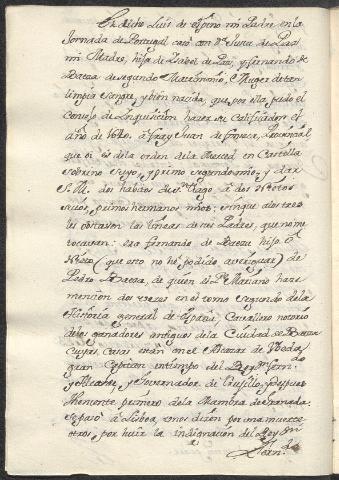 El dicho Luis de Espino mi Padre, en la
Jornada de Portugal casó con Dª Juana de Paz
mi Madre, hija de Isabel de Paz, y Fernando de
Baeza de segundo Matrimonio, Muger de tan
limpia sangre, y bien nacida, que por ella pudo el
Consejo de Inquisicion hacer su Calificador el
año de á fray Juan de Espinosa, Provincial
que oi és de la orden de la Merced en Castilla
sobrino suyo, y primo segundo mio, y dar
S. M. dos habitos de Santiago á dos Nietos
suios, primos hermanos mios; aunque a los tres
les costaron las lineas de sus Padres, que no me
tocavan. Era Fernando de Baeza hijo ó
Nieto (que esto no hé podido averiguar) de
Pedro Baeza, de quien el Pe Mariana hace
mencion dos veces en el tomo segundo de la
Historia general de España, Cavallero notorio
de los ganadores antiguos de la Ciudad de Baeza
cuyas Casas estan en el Alcazar de Vbeda,
gran Capitan en tiempo del Rey Dn Fern.do
y Alcayde, y Governador de Trusillo, y despues
Theniente primero de la Alhambra de Granada.
se pasó á Lisboa, unos dicen por una muerte
otros, por huir la indignacion del Rey Dn
Fern.do